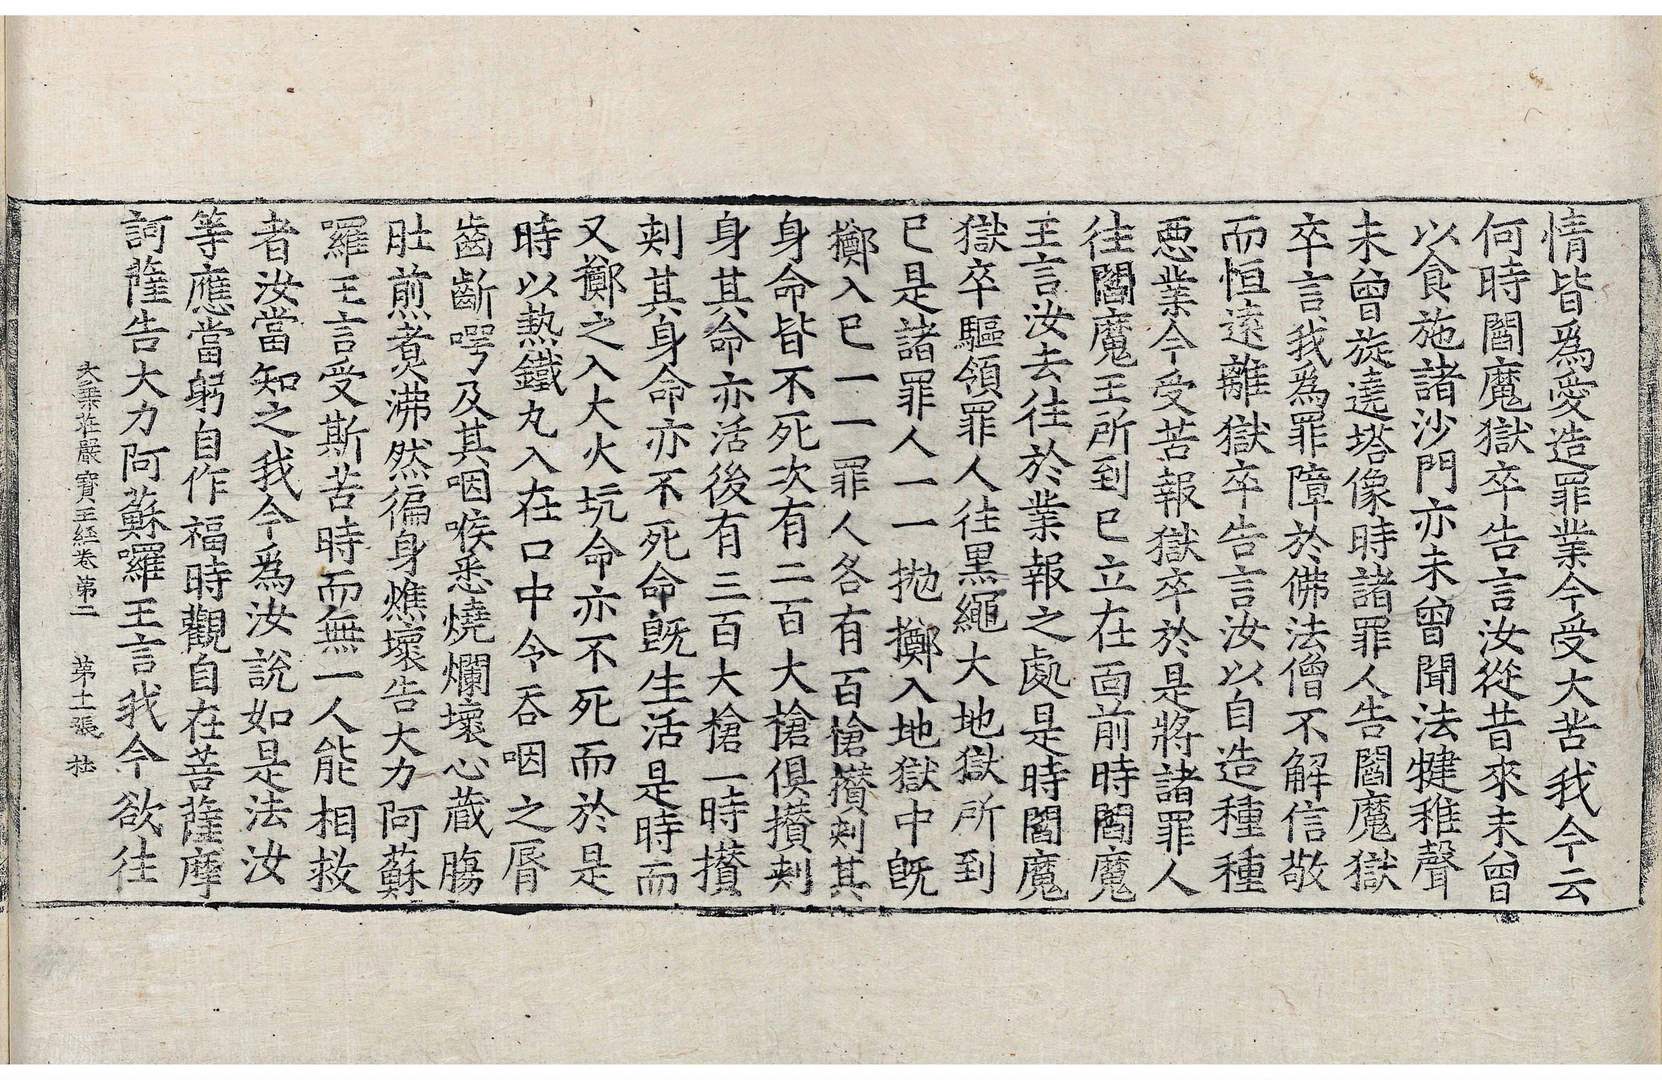 情皆為愛造罪業今受大苦我今云
何時閻魔獄卒告言汝從昔來未曾
以食施諸沙門亦未曾聞法犍稚聲
未曾旋遶塔像時諸罪人告閻魔獄
卒言我為罪障於佛法僧不解信敬
而恒遠離獄卒告言汝以自造種種
悪業今受苦報獄卒於是將諸罪人
往閻魔王所到已立在面前時閻魔
王言汝去往於業報之處是時閻魔
獄卒驅領罪人往黒繩大地獄所到
已是諸罪人一一拋擲入地獄中旣
擲入已一一罪人各有百槍攢刾其
身命皆不死次有二百大槍俱攢刾
身其命亦活後有三百大槍一時攢
刾其身命亦不死命旣生活是時而
又擲之入大火坑命亦不死而於是
時以熱鐵丸入在口中令吞咽之脣
齒齗咢及其咽喉悉燒爛壞心蔵膓
肚煎煮沸然徧身燋壞告大力阿蘇
囉王言受斯苦時而無一人能相救
者汝當知之我今為汝說如是法汝
等應當躬自作福時觀自在菩薩摩
訶薩告大力阿蘇囉王言我今欲往
大乘莊嚴寶王經卷第二 第十一張